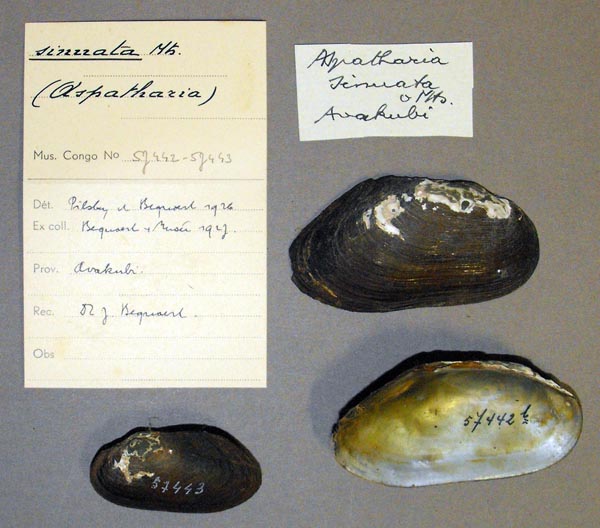 sinuata Mts.
(Aspatharia)
Mus. Congo No 57442-57443
Dét. Pilsbry & Bequaert 1926
Ex coll. Bequaert & Musée 1927.
Prov. Avakubi.
Rec. Dr J. Bequaert.
Obs
Aspatharia
sinuata
v Mts.
Avakubi
57442
57443